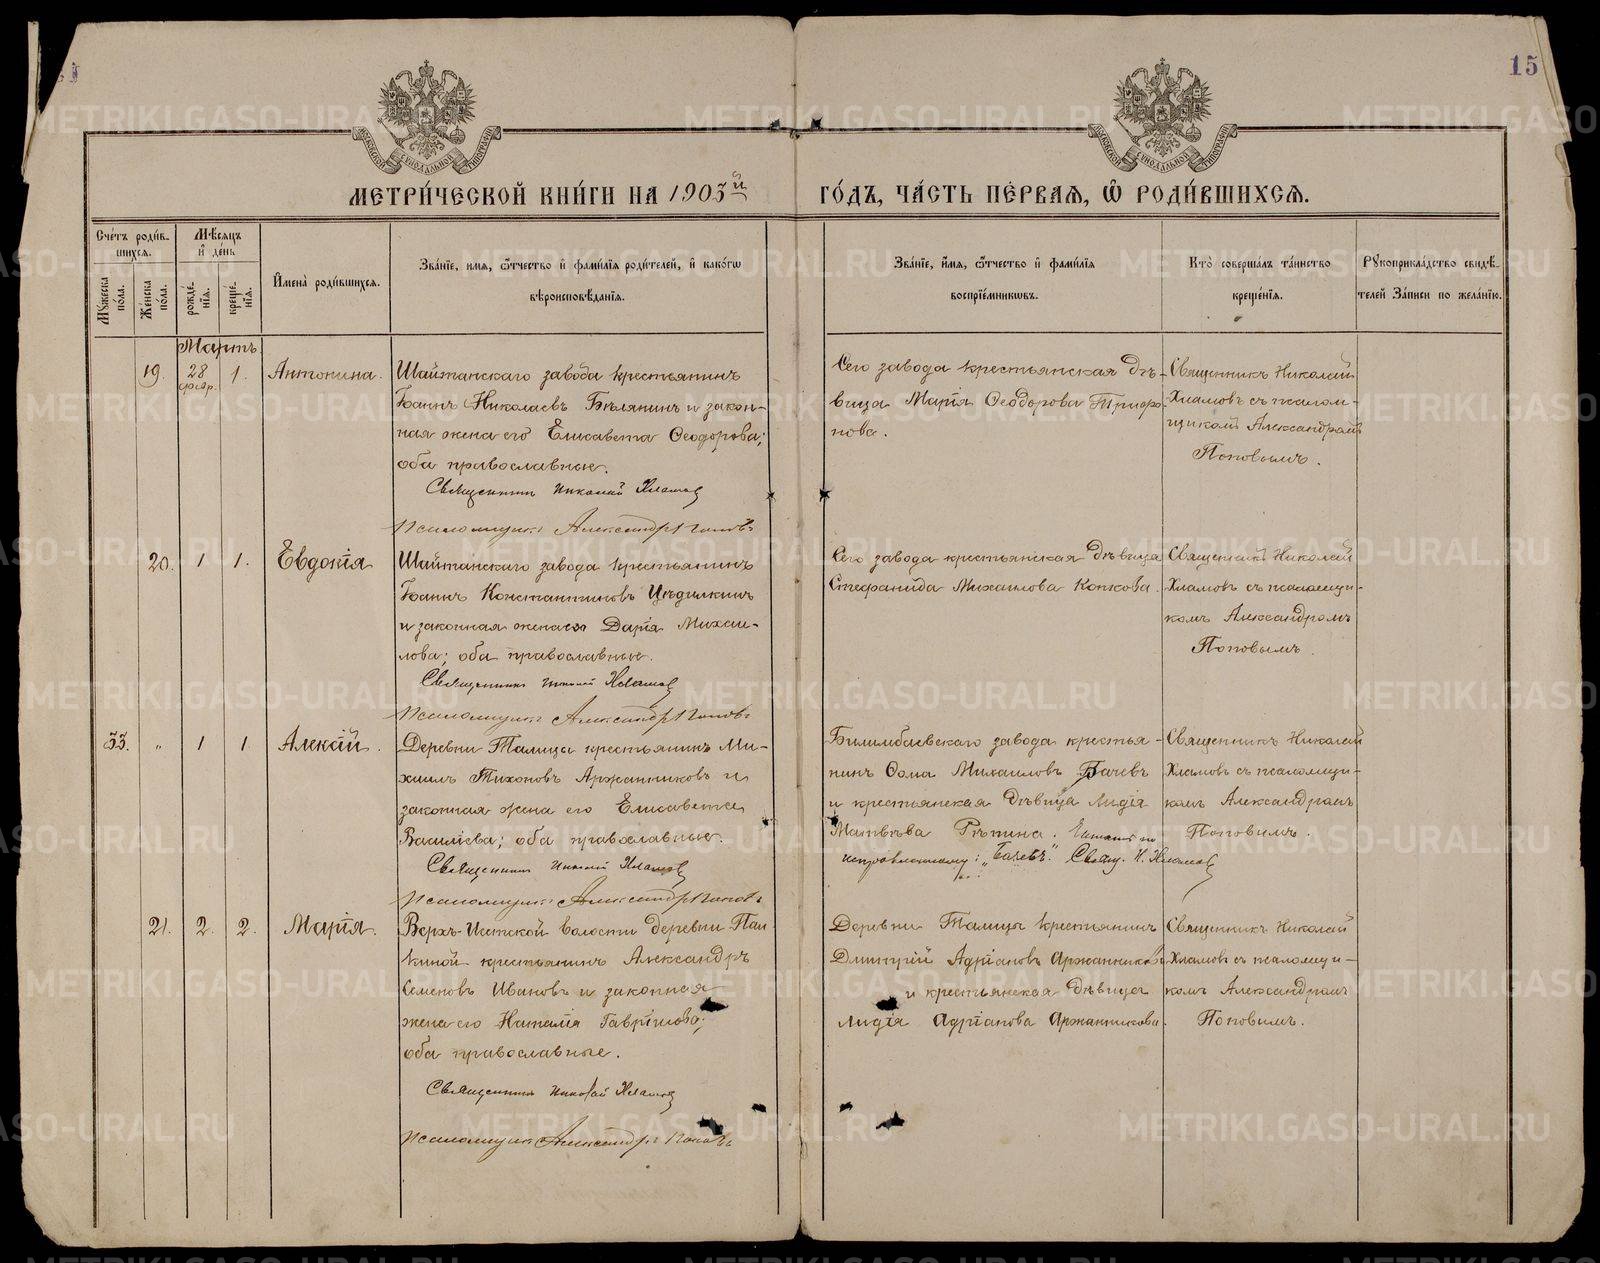 15
МОСКОВСКОЙ СѴНОДАЛЬНОЙ ТИПОГРАФІИ
МОСКОВСКОЙ СѴНОДАЛЬНОЙ ТИПОГРАФІИ
МЕТРИ́ЧЕСКОЙ КНИ́ГИ НА 1903й ГО́ДЪ, ЧА́СТЬ ПЕ́РВАЯ, Ѽ РОДИ́ВШИХСѦ.
Сче́тъ роди́в-
шихся.
Мѣ́сяцъ
и де́нь
Му́жеска
по́ла.
Же́нска
по́ла.
рожде́-
нїя.
креще́-
нїя.
Имена̀ роди́вшихся.
Зва́нїе, имя, ѻтчество и фами́лїя роди́телей, и како́гѡ
вѣроисповѣ́данїя.
Зва́нїе, имя, ѻтчество и фами́лїя
воспрїе́мникѡвъ.
Кто̀ соверша́лъ та́инство
креще́нїя.
Рукоприкла́дство свидѣ́-
телей За́писи по жела́нїю.
Мартъ
19. 28 февр. 1. Антонина.
Шайтанскаго завода крестьянинъ
Іоаннъ Николаевъ Бѣлянинъ и закон-
ная жена его Елисавета Ѳеодорова;
оба православные.
Священникъ Николай Хламов
Псаломщикъ Александръ Поповъ
Сего завода крестьянская дѣ-
вица Марія Ѳеодорова Трифо-
нова.
Священникъ Николай
Хламовъ съ псалом-
щикомъ Александромъ
Поповымъ.
20. 1 1. Евдокія
Шайтанскаго завода крестьянинъ
Іоаннъ Константиновъ Цѣдилкинъ
и законная жена его Дарія Михаи-
лова; оба православные.
Священникъ Николай Хламов
Псаломщикъ Александръ Поповъ
Сего завода крестьянская дѣвица
Стефанида Михаилова Копкова.
Священникъ Николай
Хламовъ съ псаломщи-
комъ Александромъ
Поповымъ.
33. „ 1 1 Алексій.
Деревни Талицы крестьянинъ Ми-
хаилъ Тихоновъ Аржанниковъ и
законная жена его Елисавета
Василіева; оба православные.
Священникъ Николай Хламов
Псаломщикъ Александръ Поповъ
Билимбаевскаго завода крестья-
нинъ Ѳома Михаиловъ Бачевъ
и крестьянская дѣвица Лидія
Матвѣева Рѣпина. Читать по
исправленному: „Бачевъ". Свящ. Н. Хламов
Священникъ Николай
Хламовъ съ псаломщи-
комъ Александромъ
Поповымъ.
21. 2. 2. Марія.
Верхъ-Исетской волости деревни Пал-
киной крестьянинъ Александръ
Семеновъ Ивановъ и законная
жена его Наталія Гавріилова;
оба православные.
Священникъ Николай Хламов
Псаломщикъ Александръ Поповъ
Деревни Талицы крестьянинъ
Димитрій Адріановъ Аржанниковъ
и крестьянская дѣвица
Лидія Адріанова Аржанникова.
Священникъ Николай
Хламовъ съ псаломщи-
комъ Александромъ
Поповымъ.
METRIKI.GASO-URAL.RU